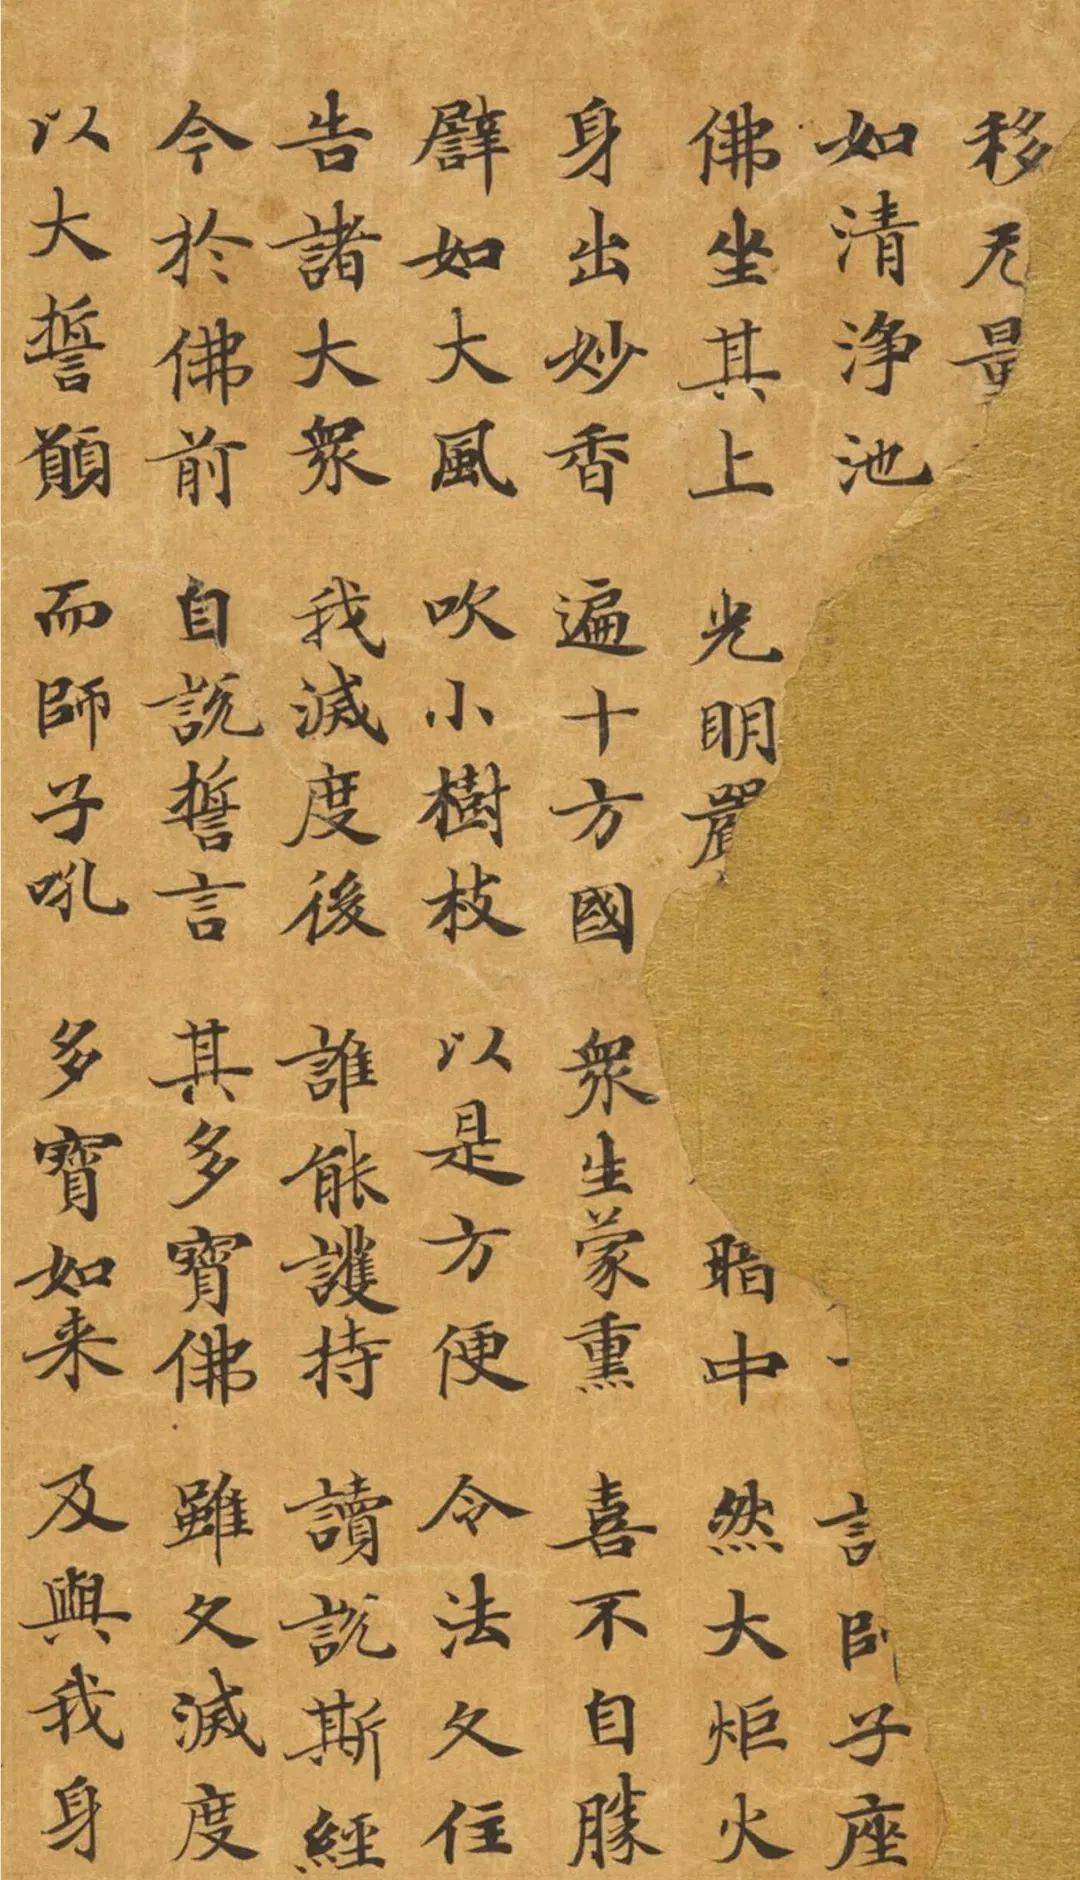 移无量
如清淨池 言師子座
佛坐其上 光明嚴 暗中 然大炬火
身出妙香 遍十方國 衆生蒙熏 喜不自勝
譬如大風 吹小樹枝 以是方便 令法久住
告諸大衆 我滅度後 誰能護持 讀說斯經
今於佛前 自說誓言 其多寶佛 雖久滅度
以大誓願 而師子吼 多寶如来 及與我身